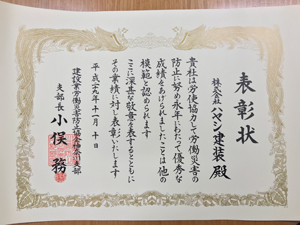 表彰状
株式会社ハヤシ建装殿
貴社は労使協力して労働災害の
防止に努め永年にわたって優秀な
成績をあげられましたことは他の
模範と認められます
ここに深甚な敬意を表するとともに
その業績に対し表彰いたします
平成二十九年十一月十日
建設業労働災害防止協会神奈川支部
支部長 小俣務